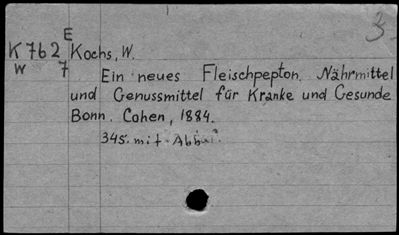 3
E
K 762 Kochs, W.
W 7 Ein neues Fleischpepton, Nährmittel
und Genussmittel für Kranke und Gesunde
Bonn. Cohen, 1884.
34S. mit